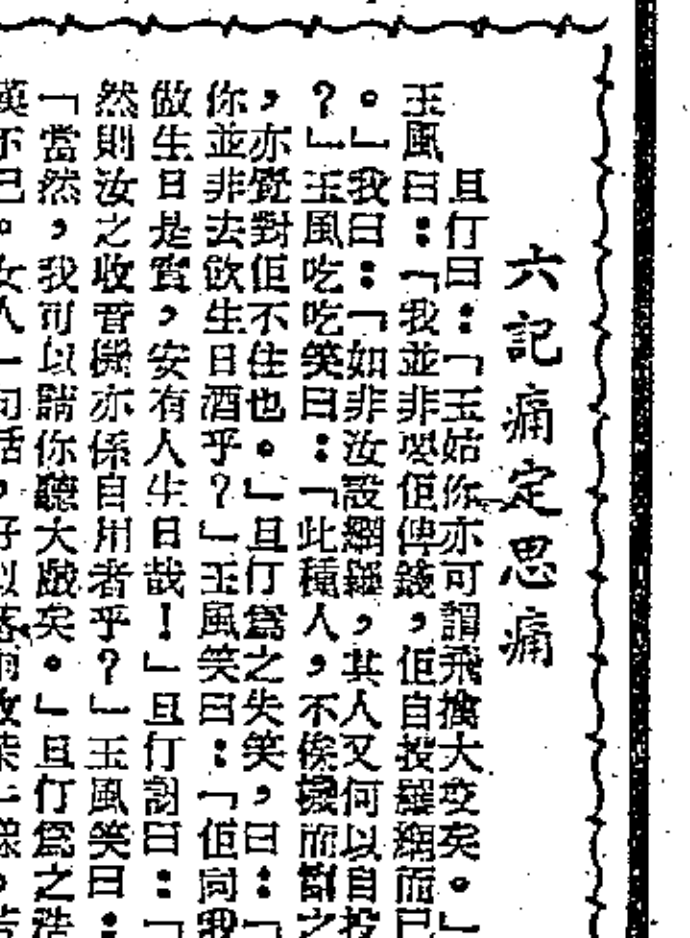 六記痛定思痛
且仃曰：「玉姑你亦可謂飛擒大咬矣。」
玉風曰：「我並非要佢俾錢，佢自投羅網而已
。」我曰：「如非汝設網羅，其人又何以自投
？」玉風吃吃笑曰：「此種人，不俟而之
，亦覺對佢不住也。」且仃爲之失笑，曰：「
你並非去飲生日酒乎？」玉風笑曰：「佢同我
做生日是實，安有人生日哉！」且仃謝曰：「
然則汝之收音機亦係自用者乎？」玉風笑曰：
「當然，我可以請你聽大戲矣。」且仃爲之浩
漢不已。女人一句話，好似落雨收柴一樣。若